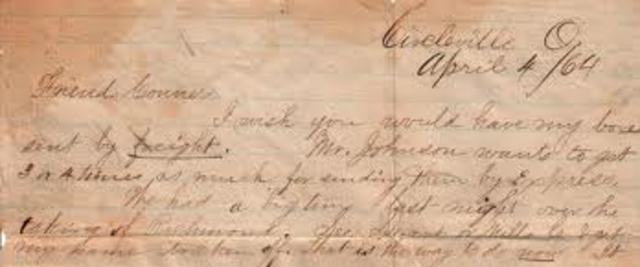 Circleville O
April 4 /64
Friend Conner
I wish you would have my boxes
sent by freight. Mr. Johnson wants to get
3 or 4 times as much for sending them by Express.
We had a big time last night over the
taking of Richmond.
that is the way to do now. It